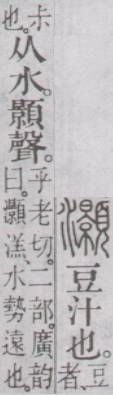 灝豆汁也。豆者、
尗也。从水。顥聲。乎老切。二部。廣韵曰灝溔、水勢遠也。